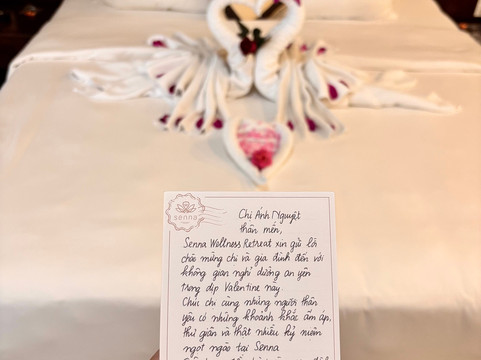 senna
Chị Ánh Nguyệt
thân mến,
Senna Wellness Retreat xin gửi lời
chào mừng chị và gia đình đến với
không gian nghỉ dưỡng an yên
trong dịp Valentine này.
Chúc chị cùng những người thân
yêu có những khoảnh khắc ấm áp,
thư giãn và thật nhiều kỷ niệm
ngọt ngào tại Senna